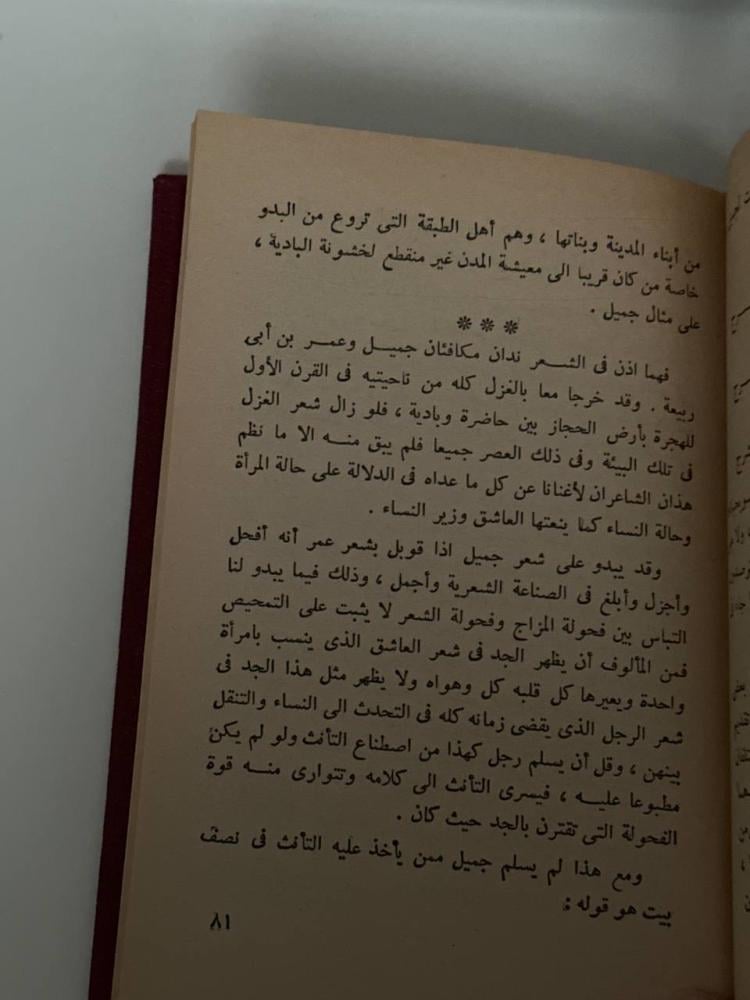 من أبناء المدينة وبناتها ، وهم أهل الطبقة التى تروع من البدو
خاصة من كان قريبا الى معيشة المدن غير منقطع لخشونة البادية ،
على مثال جميل .
***
فهما اذن فى الشعر ندان مكافئان جميل وعمر بن أبى
ربيعة . وقد خرجا معا بالغزل كله من ناحيتيه فى القرن الأول
للهجرة بأرض الحجاز بين حاضرة وبادية ، فلو زال شعر الغزل
فى تلك البيئة وفى ذلك العصر جميعا فلم يبق منه الا ما نظم
هذان الشاعران لأغنانا عن كل ما عداه فى الدلالة على حالة المرأة
وحالة النساء كما ينعتها العاشق وزير النساء .
وقد يبدو على شعر جميل اذا قوبل بشعر عمر أنه أفحل
وأجزل وأبلغ فى الصناعة الشعرية وأجمل ، وذلك فيما يبدو لنا
التباس بين فحولة المزاج وفحولة الشعر لا يثبت على التمحيص
فمن المألوف أن يظهر الجد فى شعر العاشق الذى ينسب بامرأة
واحدة ويعيرها كل قلبه كل وهواه ولا يظهر مثل هذا الجد فى
شعر الرجل الذى يقضى زمانه كله فى التحدث الى النساء والتنقل
بينهن ، وقل أن يسلم رجل كهذا من اصطناع التأنث ولو لم يكن
مطبوعا عليه ، فيسرى التأنث الى كلامه وتتوارى منه قوة
الفحولة التى تقترن بالجد حيث كان .
ومع هذا لم يسلم جميل ممن يأخذ عليه التأنث فى نصف
بيت هو قوله :
٨١